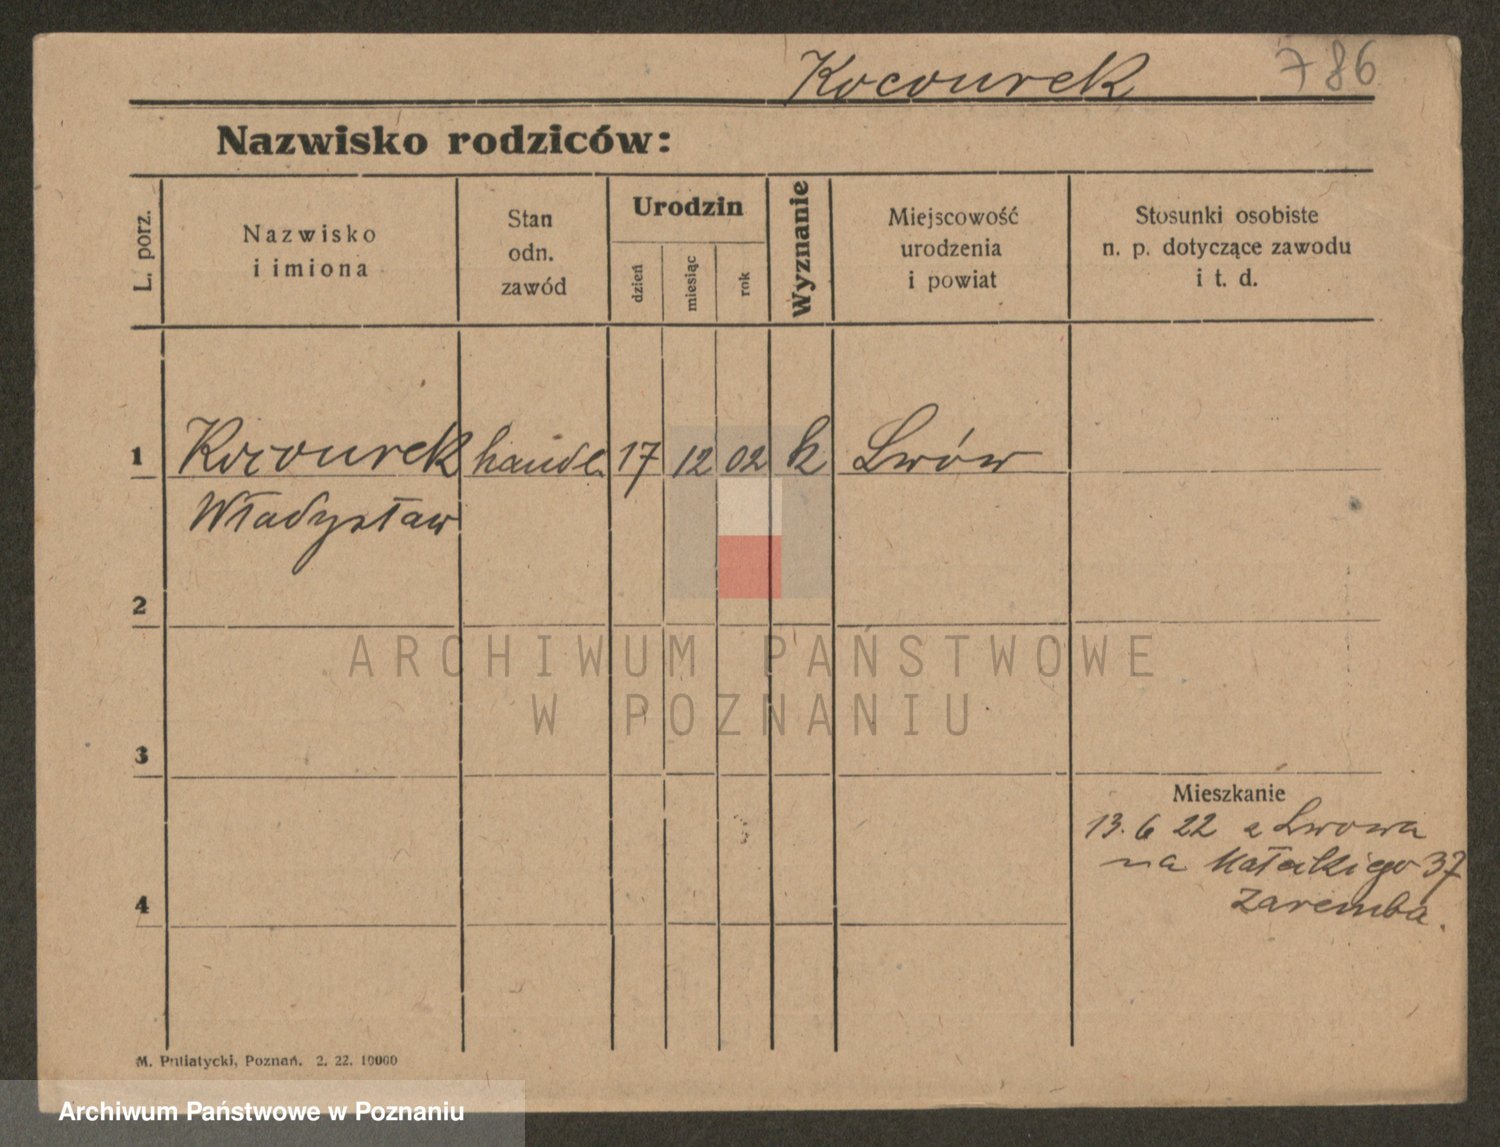 Kocourek 786
Nazwisko rodziców:
L. porz.
Nazwisko
i imiona
Stan
odn.
zawód
Urodzin
dzień
miesiąc
rok
Wyznanie
Miejscowość
urodzenia
i powiat
Stosunki osobiste
n. p. dotyczące zawodu
i t. d.
1 Kocourek handl. 17 12 02 k Lwów
Władysław
2
3
4
Mieszkanie
13. 6 22 z Lwowa
na Małeckiego 37
Zaremba.
ARCHIWUM PAŃSTWOWE
W POZNANIU
M. Putiatycki, Poznań. 2. 22. 10000
Archiwum Państwowe w Poznaniu